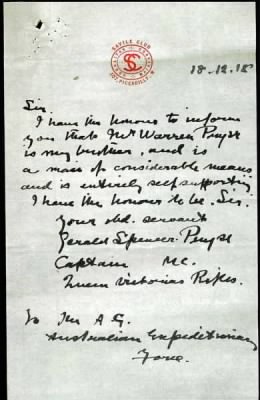 SAVILE CLUB
107, PICCADILLY, W.
18-12-15
Sir.
I have the honour to inform
you that Mr Warren Pryse
is my brother, and is
a man of considerable means
and is entirely self supporting
I have the honour to be, Sir.
Your obd. servant
Gerald Spencer Pryse
Captain MC.
Queen Victorias Rifles.
To The A G.
Australian Expeditionary
Force.